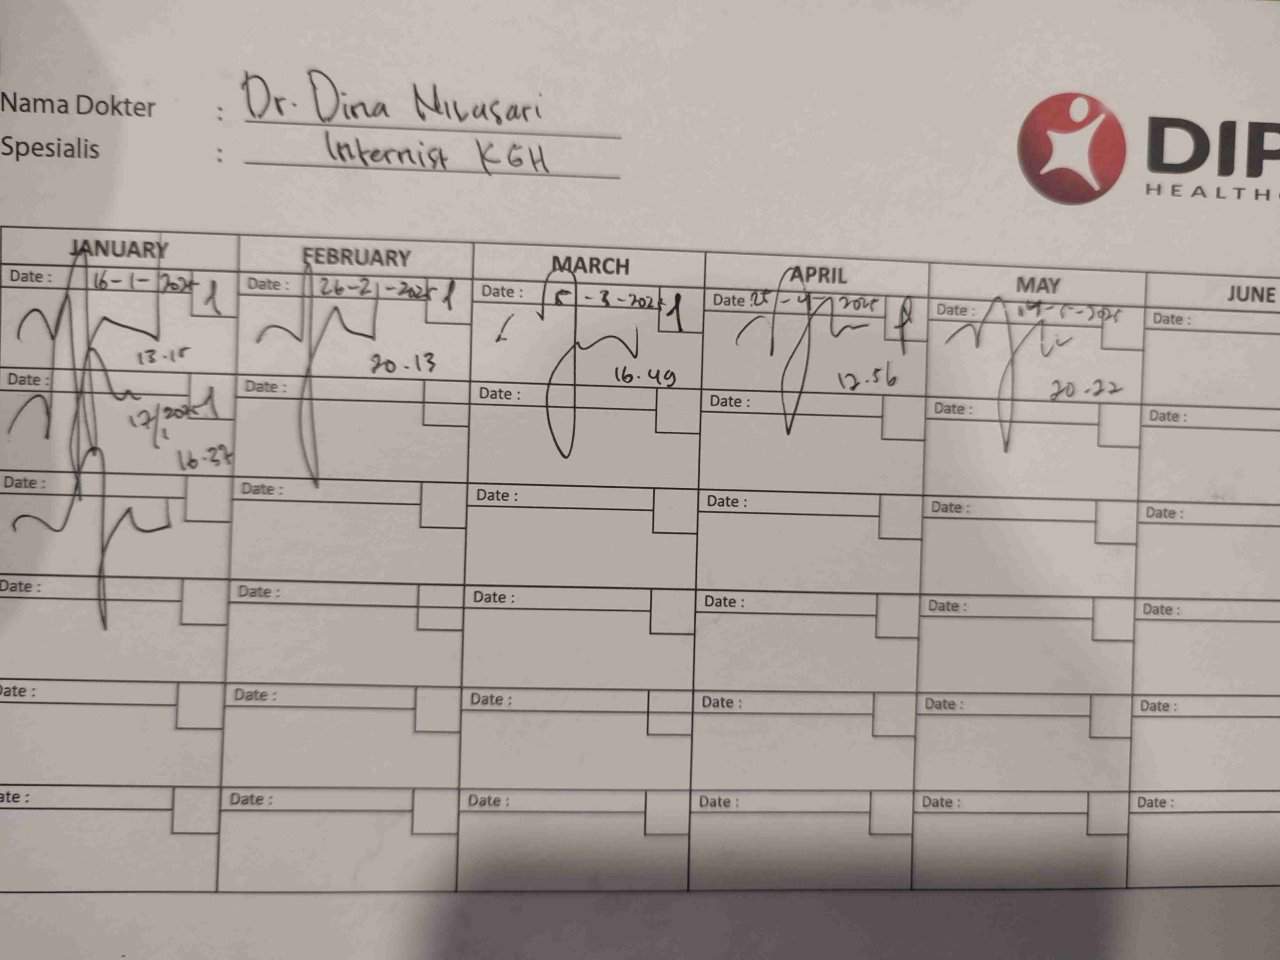 Nama Dokter : Dr. Dina Nilasari
Spesialis : Internist KGH
DIP
HEALTHC
JANUARY FEBRUARY MARCH APRIL MAY JUNE
Date : 16-1-2025 Date : 26-2-2025 Date : 5-3-2025 Date : 25-4-2025 Date : Date :
13.15 20.13 16.49 12.56 20.22
Date : Date : Date : Date : Date : Date :
17/1 2025
16.37
Date : Date : Date : Date : Date : Date :
Date : Date : Date : Date : Date : Date :
Date : Date : Date : Date : Date : Date :
ate : Date : Date : Date : Date : Date :